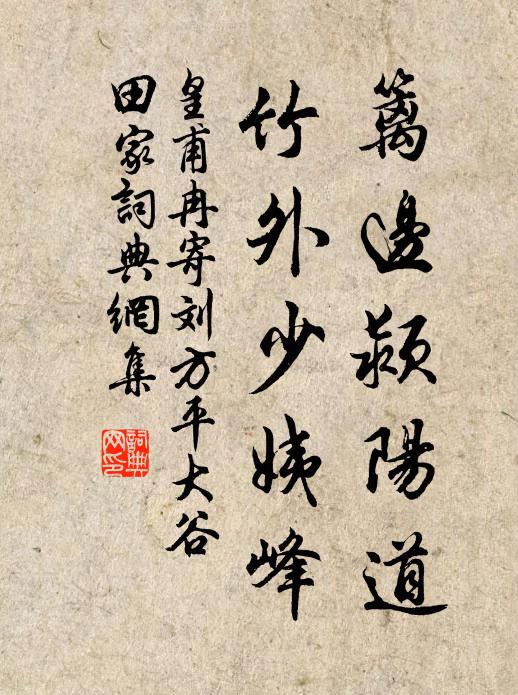 籬邊潁陽道
竹外少姨峰
皇甫冉寄刘方平大谷
田家詞典網集
詞典
网印